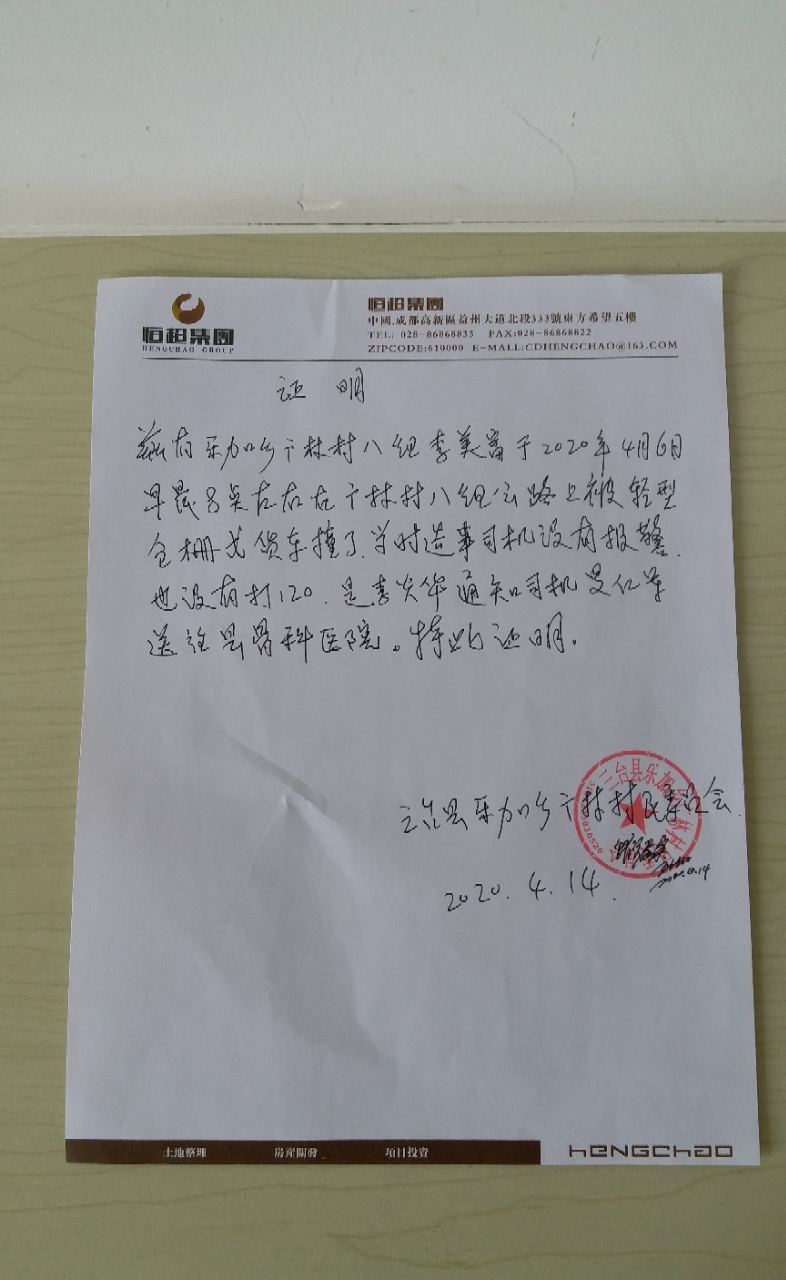 恒超集團
HENGCHAO GROUP
恒超集團
中國.成都高新區益州大道北段333號東方希望五樓
TEL: 028-86868833 FAX:028-86868822
ZIPCODE:610000 E-MALL:CDHENGCHAO@163.COM
证 明
兹有乐加乡广林村八组李美富于2020年4月6日
早晨8点左右在广林村八组公路上被轻型
仓栅式货车撞了.当时造事司机没有报警.
也没有打120.是李兴华通知司机吴仁军
送往县骨科医院。特此证明.
三台县乐加乡广林村民委员会
三台县乐加
2020.4.14.
土地整理 房產開發 項目投資
HENGCHAO